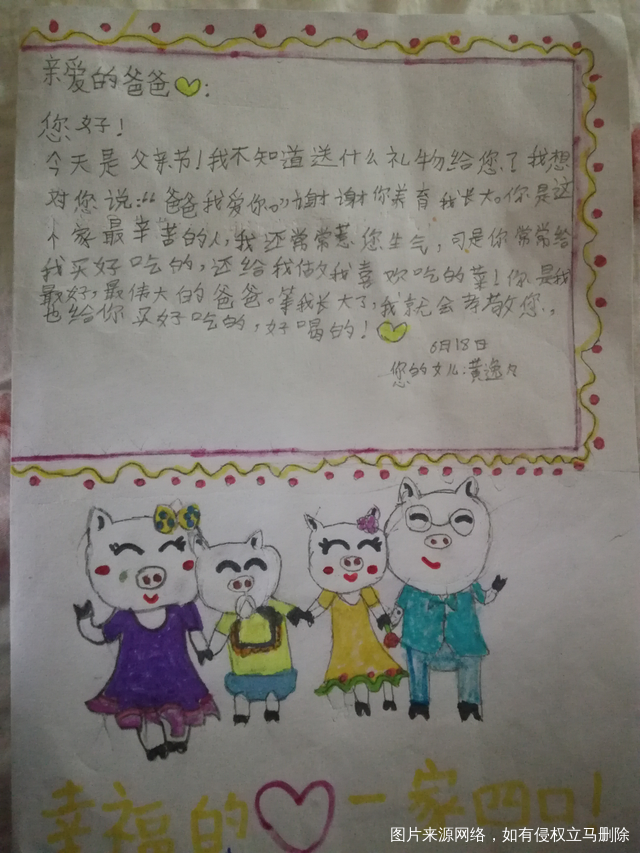 亲爱的爸爸:
您好!
今天是父亲节!我不知道送什么礼物给您了我想
对您说:“爸爸我爱你。”谢谢你养育我长大。你是这
个家最辛苦的人,我还常常惹您生气,可是你常常给
我买好吃的,还给我做我喜欢吃的菜!你是我
最好,最伟大的爸爸。等我长大了,我就会孝敬您.,
也给你买好吃的,好喝的!
6月18日
您的女儿:黄逸
幸福的一家四口!
图片来源网络,如有侵权立马删除